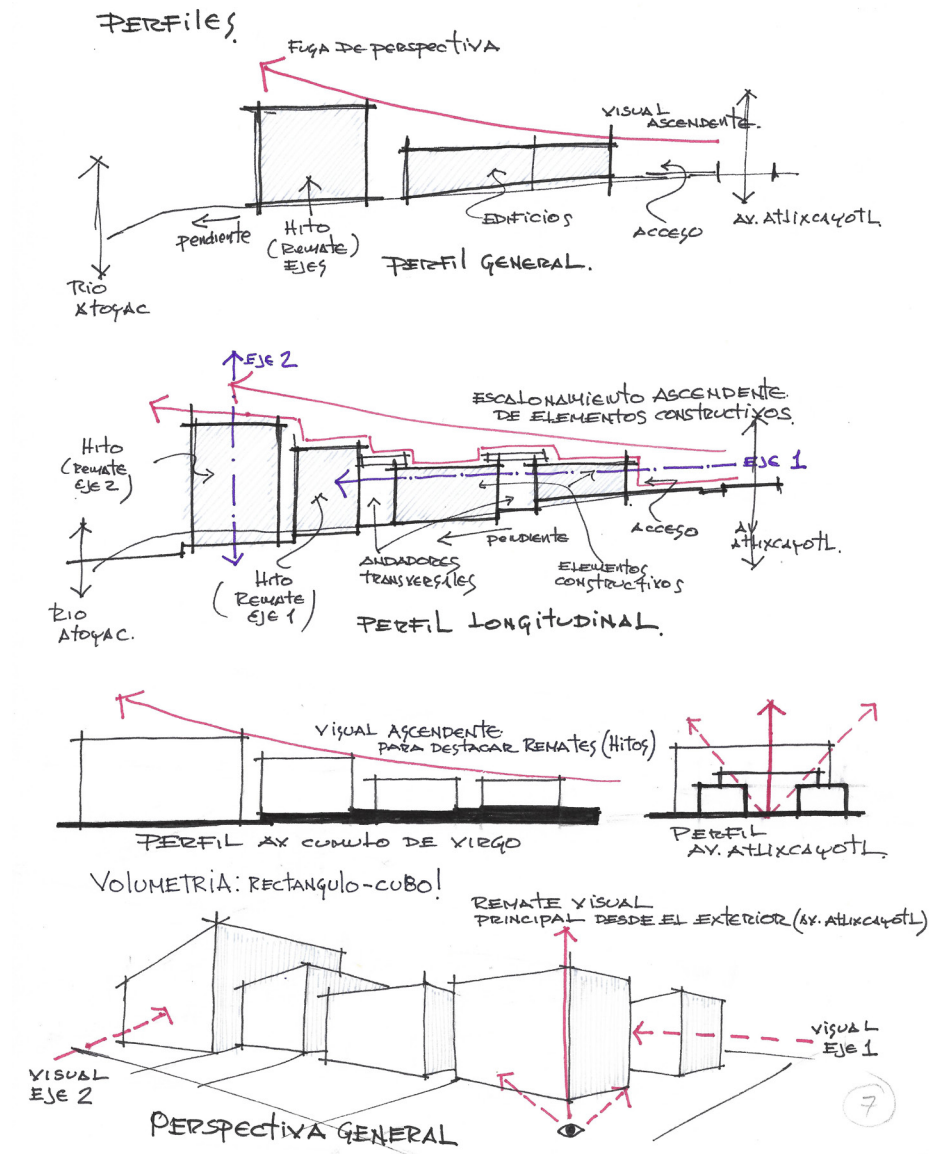 PERFiLES
FUGA DE PERSPECTIVA
VISUAL
ASCENDENTE.
PENDIENTE
HITO
(REMATE)
EJES
EDIFICIOS
ACCESO
AV. ATLIXCAYOTL
RIO
ATOYAC
PERFIL GENERAL.
EJE 2
ESCALONAMIENTO ASCENDENTE
DE ELEMENTOS CONSTRUCTIVOS.
HITO
(REMATE
EJE 2)
EJE 1
ACCESO
AV.
ATLIXCAYOTL.
PENDIENTE
ANDADORES
TRANSVERSALES
ELEMENTOS
CONSTRUCTIVOS
HITO
(REMATE
EJE 1)
RIO
ATOYAC.
PERFIL LONGITUDINAL.
VISUAL ASCENDENTE
PARA DESTACAR REMATES (HITOS)
PERFIL AV CUMULO DE VIRGO
PERFIL
AV. ATLIXCAYOTL.
VOLUMETRIA: RECTANGULO-CUBO!
REMATE VISUAL
PRINCIPAL DESDE EL EXTERIOR (AV. ATLIXCAYOTL)
VISUAL
EJE 1
VISUAL
EJE 2
PERSPECTIVA GENERAL
7